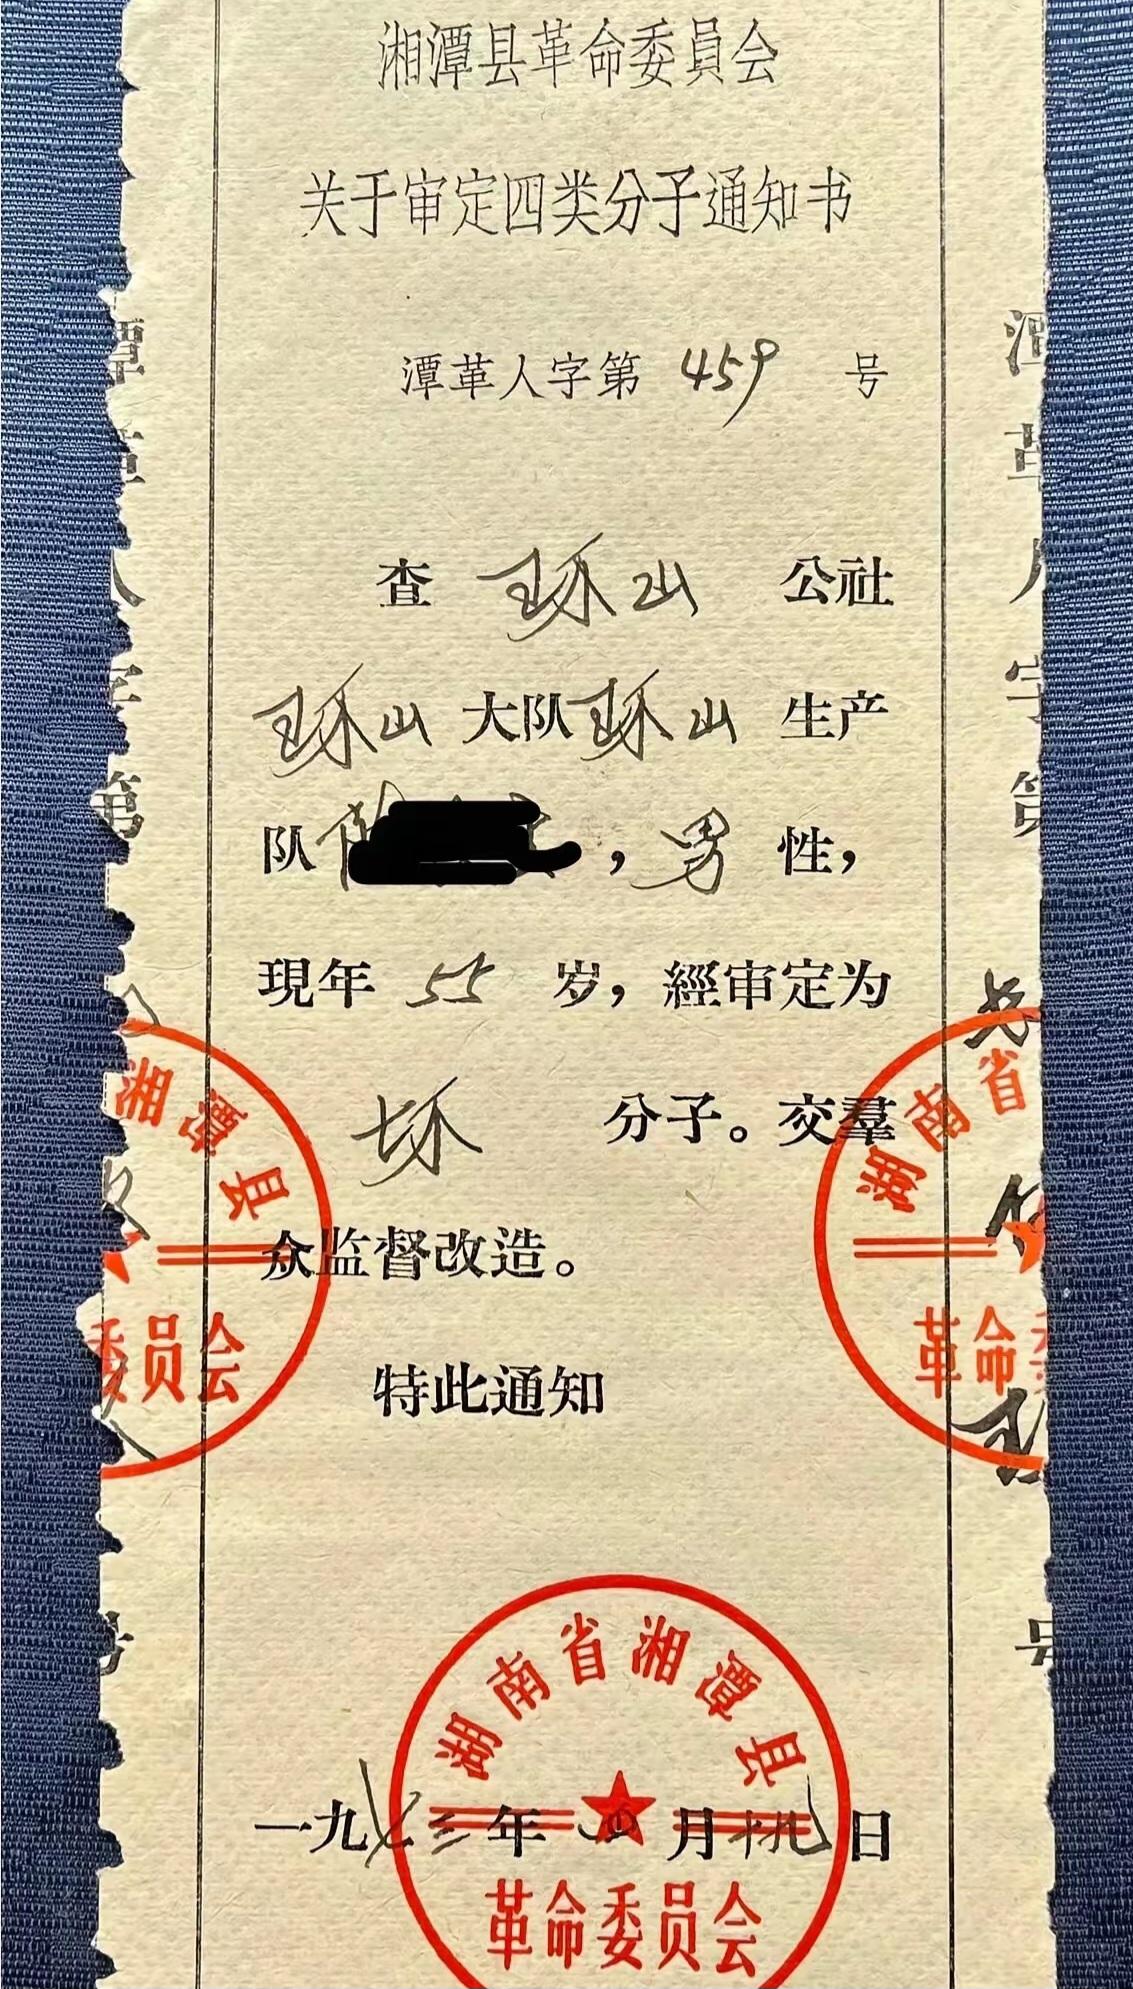 湘潭县革命委員会
关于审定四类分子通知书
潭革人字第 459 号
查 环山 公社
环山 大队 环山 生产
队 ，男 性，
現年 55 岁，經审定为
坏 分子。交羣
众监督改造。
特此通知
一九七三年四月十九日
湖南省湘潭县
革命委员会
潭革人字第
号
湘潭县
委员会
潭革人字第
号
湖南省
革命